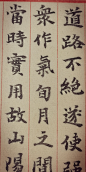 道路不絶遂使强
衆作氣旬月之間
當時實用故山陽